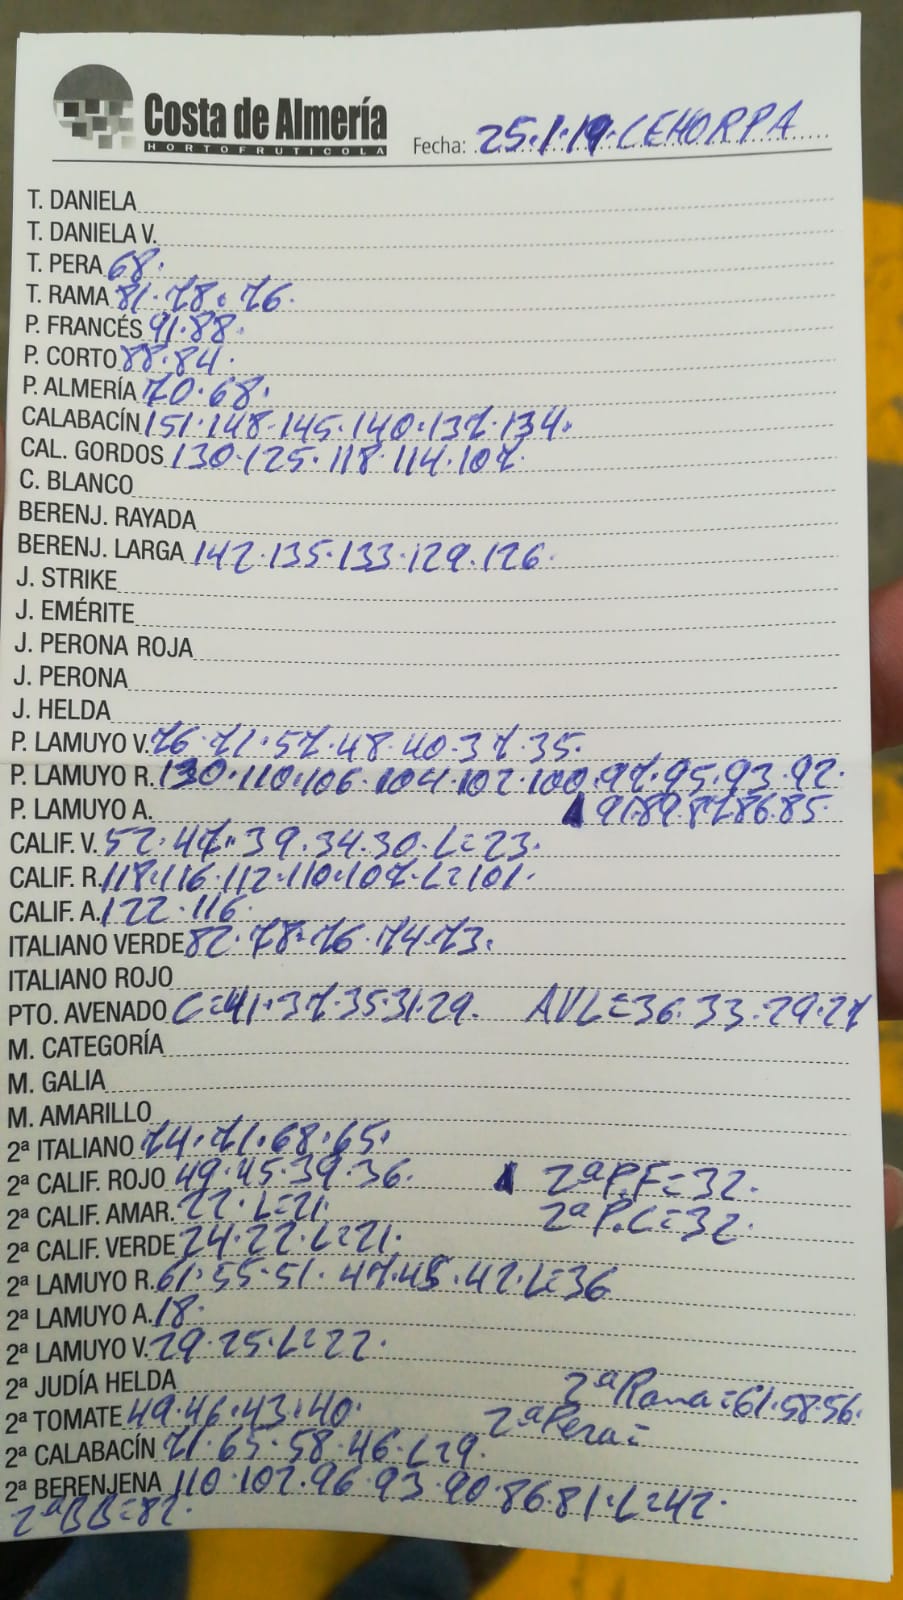 Costa de Almería
HORTOFRUTICOLA
Fecha: 25.1.19. CEHORPA
T. DANIELA
T. DANIELA V.
T. PERA 68.
T. RAMA 81.78.76.
P. FRANCÉS 91.88.
P. CORTO 88.84.
P. ALMERÍA 70.68.
CALABACÍN 151.148.145.140.137.134.
CAL. GORDOS 130.125.118.114.107.
C. BLANCO
BERENJ. RAYADA
BERENJ. LARGA 142.135.133.129.126.
J. STRIKE
J. EMÉRITE
J. PERONA ROJA
J. PERONA
J. HELDA
P. LAMUYO V. 76.71.57.48.40.37.35.
P. LAMUYO R. 130.110.106.104.102.100.97.95.93.92.
P. LAMUYO A. 91.89.87.86.85.
CALIF. V. 52.47.39.34.30.L=23.
CALIF. R. 118.116.112.110.107.L=101.
CALIF. A. 122.116.
ITALIANO VERDE 82.78.76.74.73.
ITALIANO ROJO
PTO. AVENADO C=41.37.35.31.29. AVL=36.33.29.27
M. CATEGORÍA
M. GALIA
M. AMARILLO
2ª ITALIANO 74.71.68.65.
2ª CALIF. ROJO 49.45.39.36. 2ª P.F=32.
2ª CALIF. AMAR. 22.L=21. 2ª P.C=32.
2ª CALIF. VERDE 24.22.L=21.
2ª LAMUYO R. 61.55.51.47.45.42.L=36
2ª LAMUYO A. 18.
2ª LAMUYO V. 29.25.L=22.
2ª JUDÍA HELDA 2ª Rama=61.58.56.
2ª TOMATE 49.46.43.40. 2ª Pera=
2ª CALABACÍN 71.65.58.46.L=9.
2ª BERENJENA 110.102.96.93.90.86.81.L=42.
2ª BB=82.